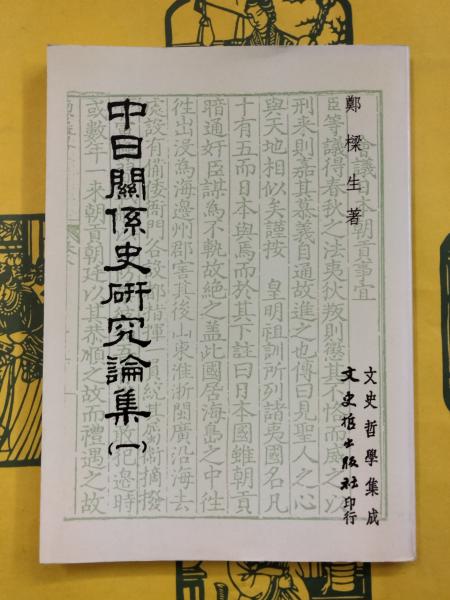 鄭樑生著
文史哲學集成
文史哲出版社印行
中日關係史研究論集(一)
會議日本朝貢事宜
臣等議得春秋之法夷狄叛則懲其不恪而威之以
刑来則嘉其慕義自通故進之也傳曰見聖人之心
與天地相似矣謹按 皇明祖訓所列諸夷國名凡
十有五而日本與焉而於其下註曰日本國雖朝貢
暗通奸臣謀為不軌故絶之蓋此國居海島之中徃
徃出浸為海邊州郡害其後山東淮浙閩廣沿海去
處設有備倭衙門各設都指揮一員統其屬衛摘撥
犯邊時
或數年一來朝貢朝廷以其恭順之故而禮遇之故